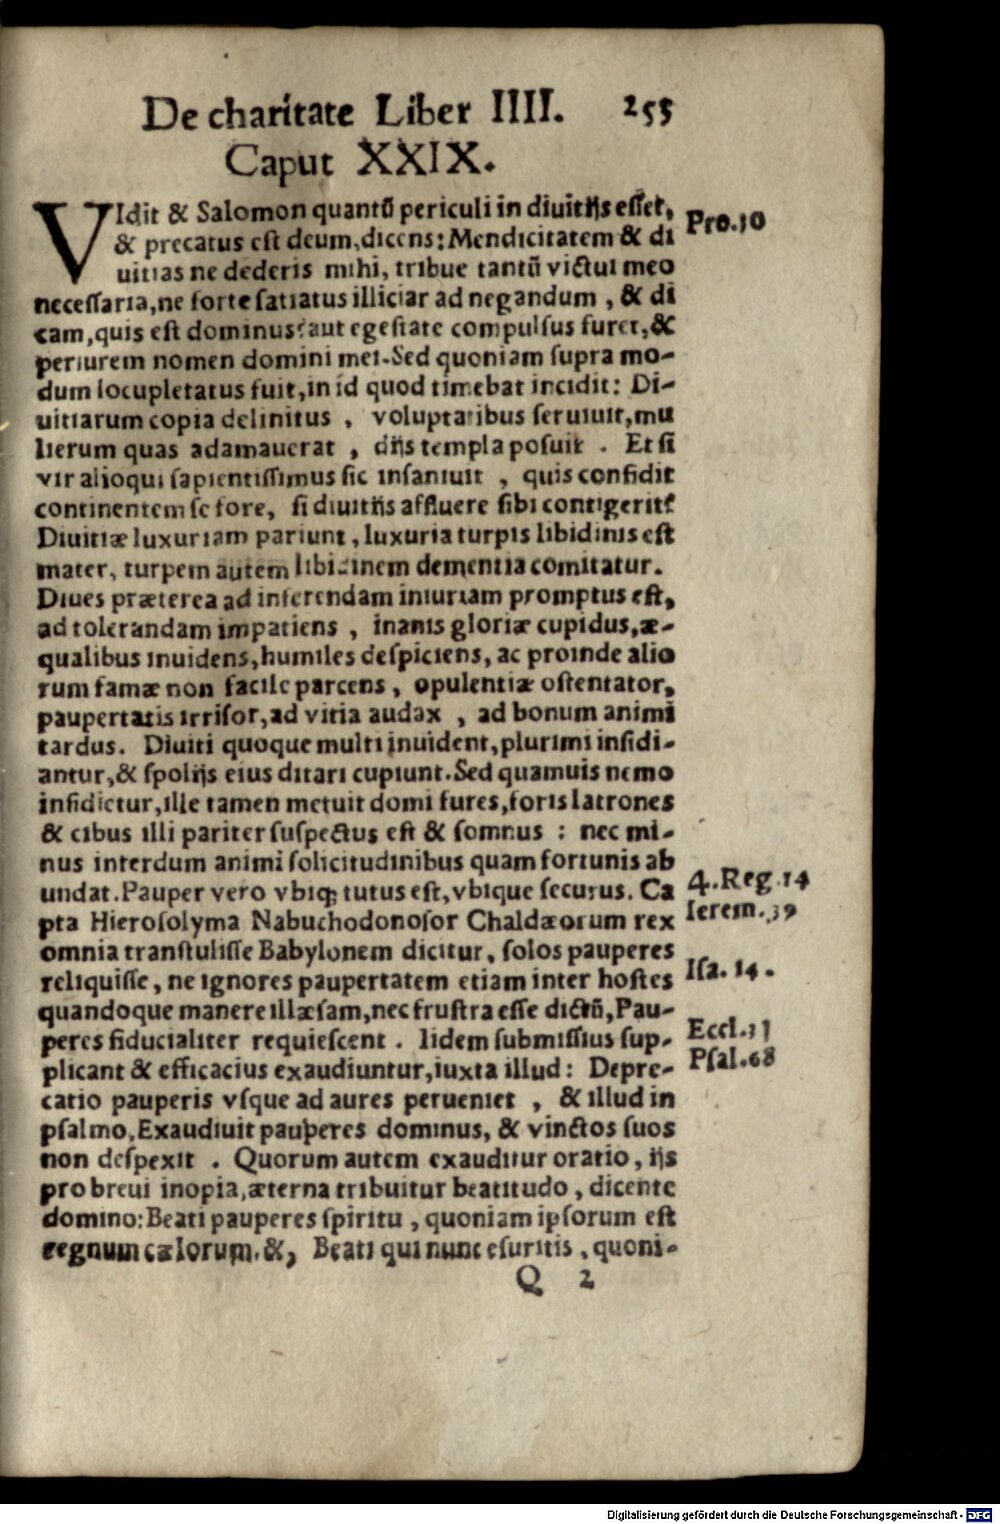 De charitate Liber IIII. 255
Caput XXIX.
VIdit & Salomon quantū periculi in diuitijs esset,
& precatus est deum, dicens: Mendicitatem & di
uitias ne dederis mihi, tribue tantū victui meo
necessaria, ne forte satiatus illiciar ad negandum, & di
cam, quis est dominus? aut egestate compulsus furer, &
periurem nomen domini mei. Sed quoniam supra mo-
dum locupletatus fuit, in id quod timebat incidit: Di-
uitiarum copia delinitus, voluptatibus seruiuit, mu
lierum quas adamauerat, dijs templa posuit. Et si
vir alioqui sapientissimus sic insaniuit, quis confidit
continentem se fore, si diuitijs affluere sibi contigerit?
Diuitiæ luxuriam pariunt, luxuria turpis libidinis est
mater, turpem autem libidinem dementia comitatur.
Diues præterea ad inferendam iniuriam promptus est,
ad tolerandam impatiens, inanis gloriæ cupidus, æ-
qualibus inuidens, humiles despiciens, ac proinde alio
rum famæ non facile parcens, opulentiæ ostentator,
paupertatis irrisor, ad vitia audax, ad bonum animi
tardus. Diuiti quoque multi inuident, plurimi insidi-
antur, & spolijs eius ditari cupiunt. Sed quamuis nemo
insidietur, ille tamen metuit domi fures, foris latrones
& cibus illi pariter suspectus est & somnus: nec mi-
nus interdum animi solicitudinibus quam fortunis ab
undat. Pauper vero vbiqꝫ tutus est, vbique securus. Ca
pta Hierosolyma Nabuchodonosor Chaldæorum rex
omnia transtulisse Babylonem dicitur, solos pauperes
reliquisse, ne ignores paupertatem etiam inter hostes
quandoque manere illæsam, nec frustra esse dictū, Pau-
peres fiducialiter requiescent. Iidem submissius sup-
plicant & efficacius exaudiuntur, iuxta illud: Depre-
catio pauperis vsque ad aures perueniet, & illud in
psalmo, Exaudiuit pauperes dominus, & vinctos suos
non despexit. Quorum autem exauditur oratio, ijs
pro breui inopia, æterna tribuitur beatitudo, dicente
domino: Beati pauperes spiritu, quoniam ipsorum est
regnum cælorum. &, Beati qui nunc esuritis, quoni-
Q 2
Pro.30
4.Reg.14
Ierem.39
Isa. 14.
Eccl.11
Psal.68
Digitalisierung gefördert durch die Deutsche Forschungsgemeinschaft - DFG